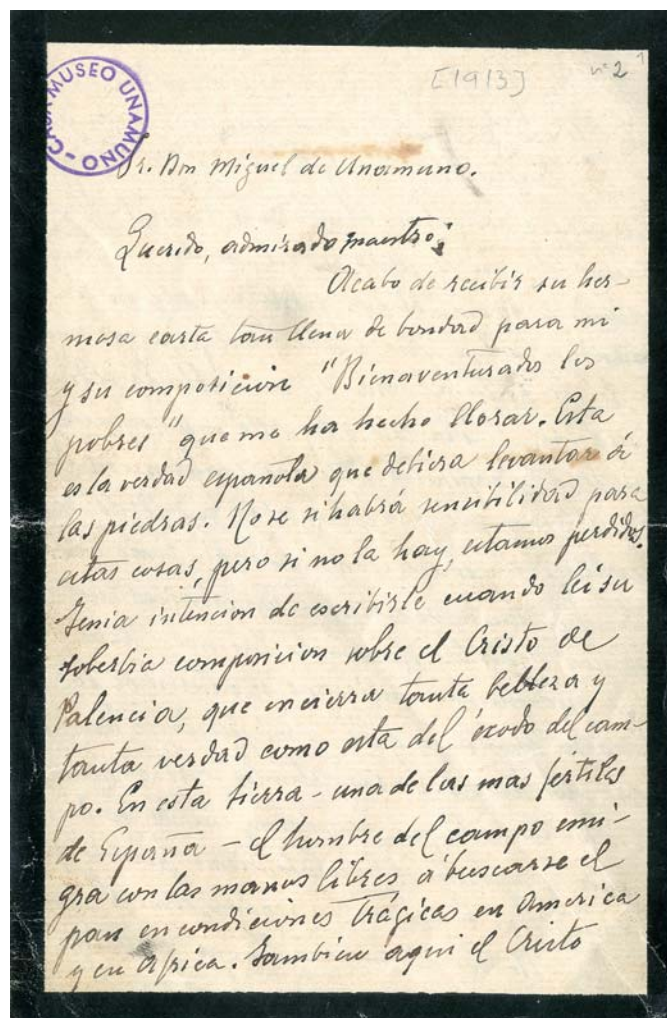 CASA MUSEO UNAMUNO -
[1913]
nº 2
Sr. Don Miguel de Unamuno.
Querido, admirado maestro:
Acabo de recibir su her-
mosa carta tan llena de bondad para mi
y su composicion "Bienaventurados los
pobres" que me ha hecho llorar. Esta
es la verdad española que debiera levantar á
las piedras. No se si habrá sensibilidad para
estas cosas, pero si no la hay, estamos perdidos.
Tenia intencion de escribirle cuando leí su
soberbia composicion sobre el Cristo de
Palencia, que encierra tanta belleza y
tanta verdad como esta del éxodo del cam-
po. En esta tierra - una de las mas fértiles
de España - el hombre del campo emi-
gra con las manos libres á buscarse el
pan en condiciones trágicas en America
y en Africa. Tambien aqui el Cristo